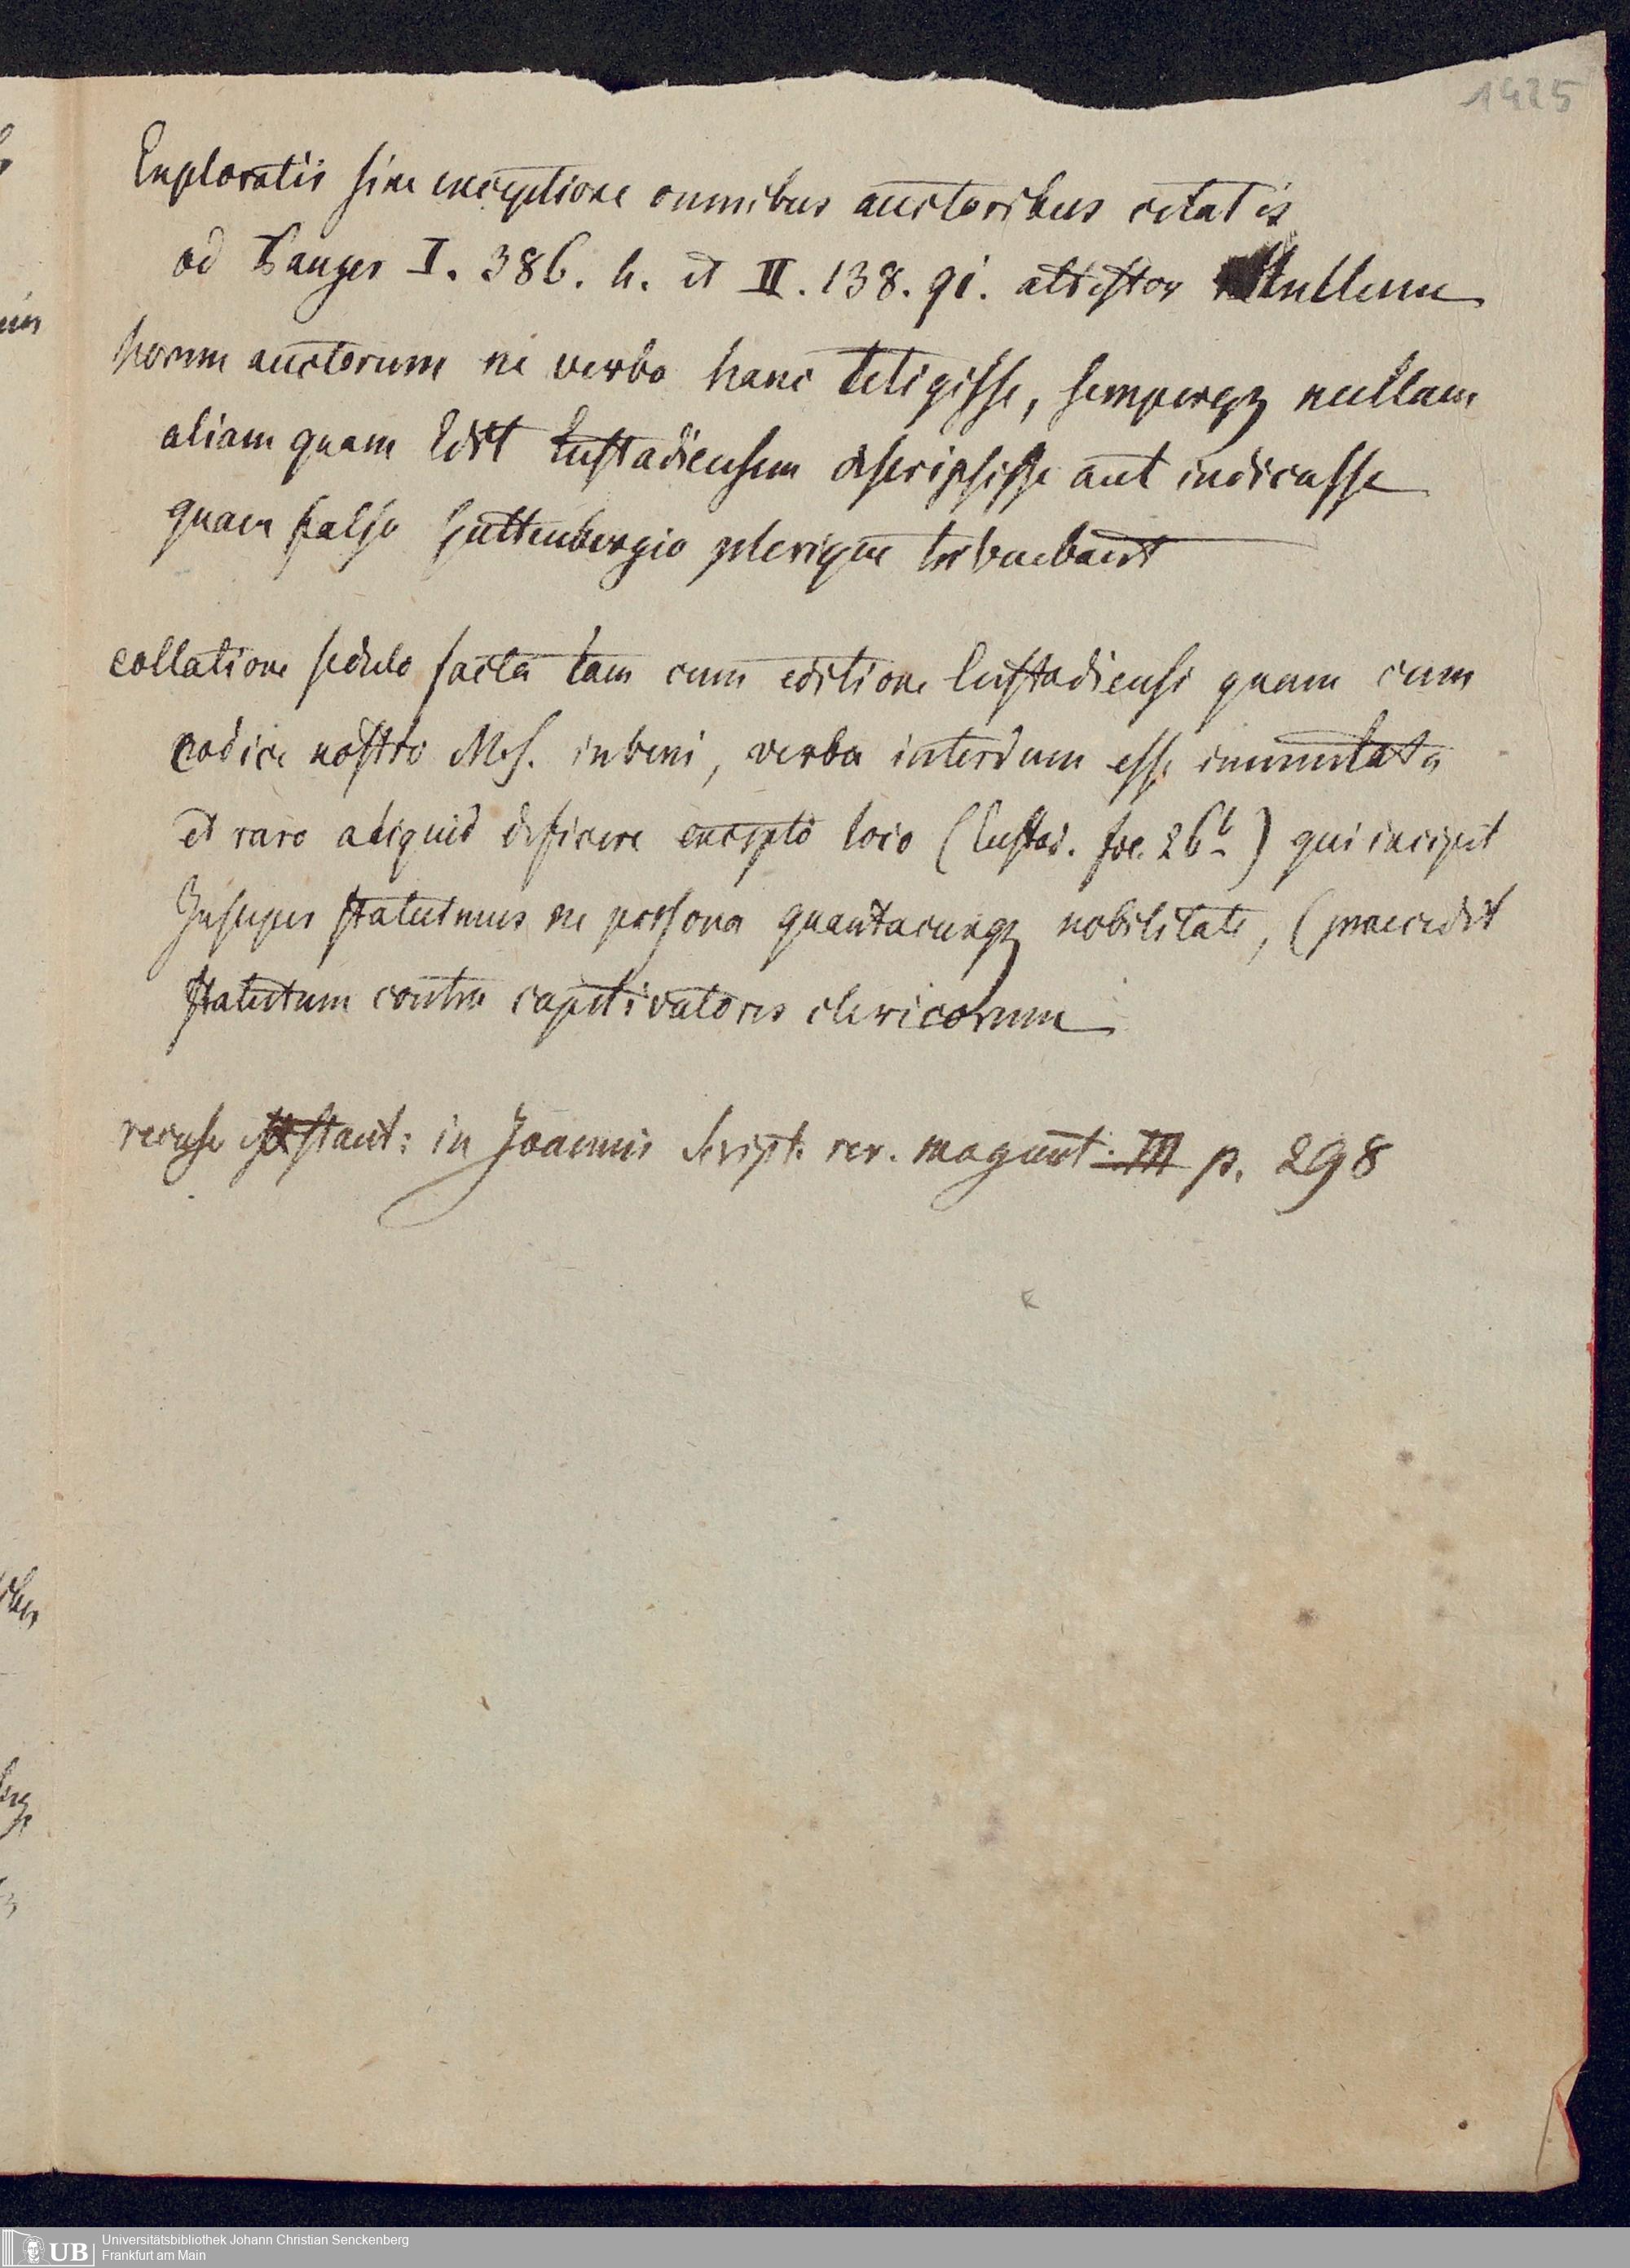 1425
Exploratis sine exceptione omnibus auctoribus citatis
ad Panzer I. 386. h. et II. 138. 91. attestor Nullum
horum auctorum ne verbo hanc tetigisse, semperqʒ nullam
aliam quam Edit Lustadiensem descripsisse aut indicasse
quam falso Guttenbergio plerique tribuebant
collatione sedulo facta tam cum editione Lustadiensi quam cum
codice nostro MS. inveni, verba interdum esse immutata
et raro aliquid deficere excepto loco (Lustad. fol. 26b) qui incipit
Insuper statuimus ne persona quantacunqʒ nobilitate, (praecedit
statutum contra captivatores clericorum
recuse exstant: in Joannis Script. rer. magunt. III p. 298
UB
Universitätsbibliothek Johann Christian Senckenberg
Frankfurt am Main